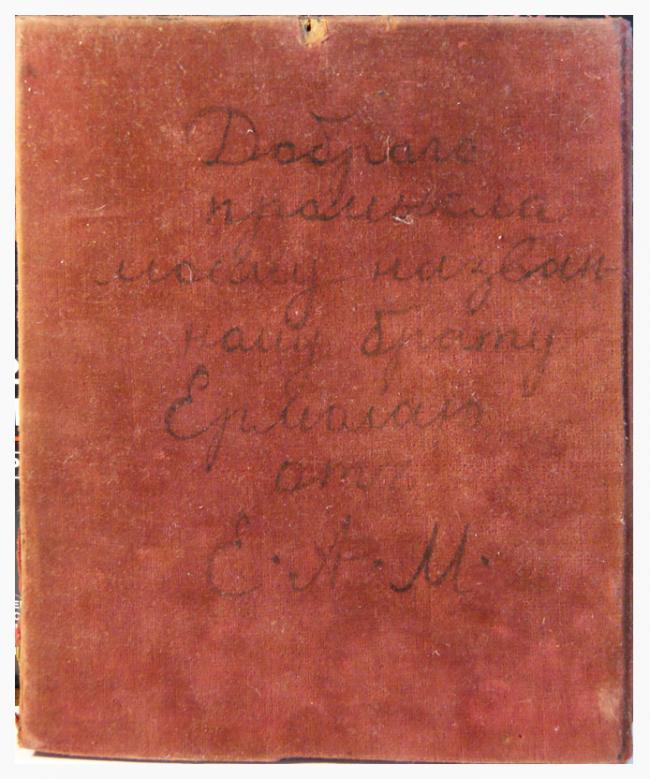 Добраго
промысла
моему назван-
ному брату
Ермолаю
отъ
Е. А. М.